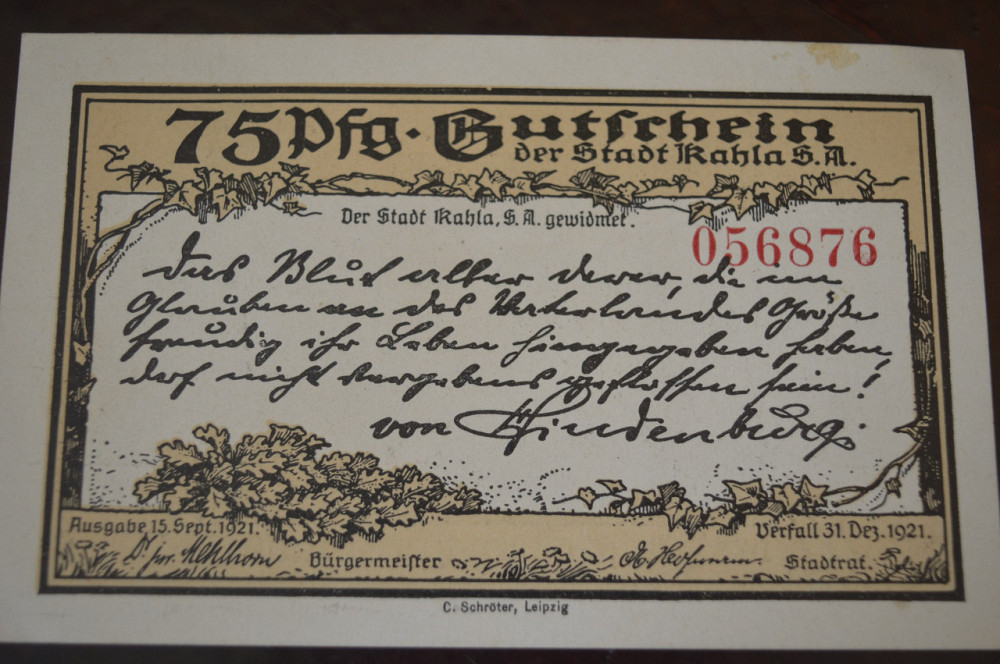 75 Pfg. Gutschein
der Stadt Kahla S.A.
Der Stadt Kahla, S.A. gewidmet.
056876
Das Blut aller derer, die im
Glauben an des Vaterlandes Größe
freudig ihr Leben hingegeben haben,
darf nicht vergebens geflossen sein!
von Hindenburg.
Ausgabe 15. Sept. 1921.
Verfall 31. Dez. 1921.
Dr jur. Mehlhorn Bürgermeister
Stadtrat.
C. Schröter, Leipzig